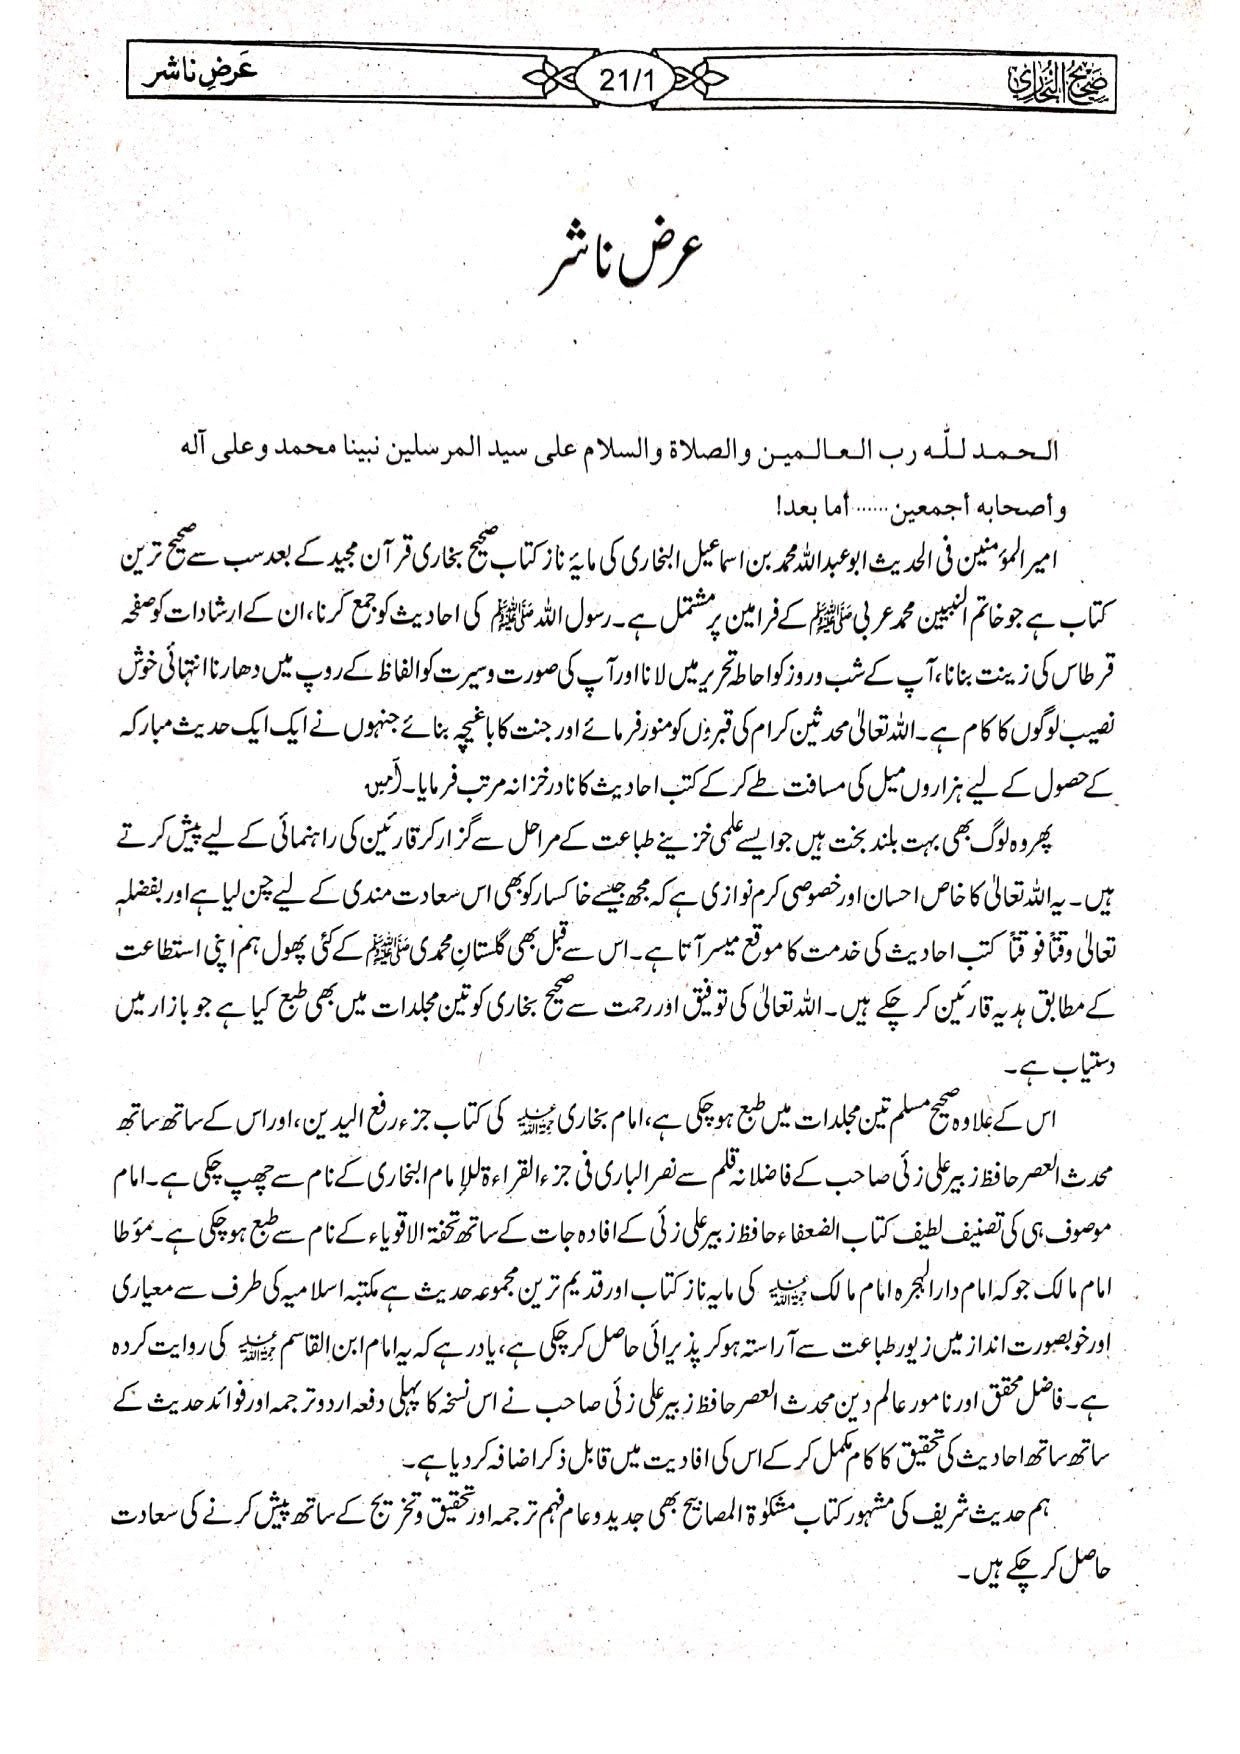 صحیح البخاری 21/1 عَرضِ ناشر
عرض ناشر
الحمد للّٰه رب العالمین والصلاة والسلام علی سید المرسلین نبینا محمد وعلی آله
وأصحابه أجمعین...... أما بعد!
امیر المؤمنین فی الحدیث ابوعبداللہ محمد بن اسماعیل البخاری کی مایۂ ناز کتاب صحیح بخاری قرآن مجید کے بعد سب سے صحیح ترین
کتاب ہے جو خاتم النبیین محمد عربی ﷺ کے فرامین پر مشتمل ہے۔ رسول اللہ ﷺ کی احادیث کو جمع کرنا، ان کے ارشادات کو صفحہ
قرطاس کی زینت بنانا، آپ کے شب و روز کو احاطہ تحریر میں لانا اور آپ کی صورت و سیرت کو الفاظ کے روپ میں دھارنا انتہائی خوش
نصیب لوگوں کا کام ہے۔ اللہ تعالیٰ محدثین کرام کی قبروں کو منور فرمائے اور جنت کا باغیچہ بنائے جنہوں نے ایک ایک حدیث مبارکہ
کے حصول کے لیے ہزاروں میل کی مسافت طے کر کے کتب احادیث کا نادر خزانہ مرتب فرمایا۔ آمین
پھر وہ لوگ بھی بہت بلند بخت ہیں جو ایسے علمی خزینے طباعت کے مراحل سے گزار کر قارئین کی راہنمائی کے لیے پیش کرتے
ہیں۔ یہ اللہ تعالیٰ کا خاص احسان اور خصوصی کرم نوازی ہے کہ مجھ جیسے خاکسار کو بھی اس سعادت مندی کے لیے چن لیا ہے اور بفضلہٖ
تعالیٰ وقتاً فوقتاً کتب احادیث کی خدمت کا موقع میسر آتا ہے۔ اس سے قبل بھی گلستانِ محمدی ﷺ کے کئی پھول ہم اپنی استطاعت
کے مطابق ہدیہ قارئین کر چکے ہیں۔ اللہ تعالیٰ کی توفیق اور رحمت سے صحیح بخاری کو تین مجلدات میں بھی طبع کیا ہے جو بازار میں
دستیاب ہے۔
اس کے علاوہ صحیح مسلم تین مجلدات میں طبع ہو چکی ہے، امام بخاری رحمہ اللہ کی کتاب جزء رفع الیدین، اور اس کے ساتھ ساتھ
محدث العصر حافظ زبیر علی زئی صاحب کے فاضلانہ قلم سے نصر الباری فی جزء القراءة للإمام البخاری کے نام سے چھپ چکی ہے۔ امام
موصوف ہی کی تصنیف لطیف کتاب الضعفاء حافظ زبیر علی زئی کے افادہ جات کے ساتھ تحفۃ الاقویاء کے نام سے طبع ہو چکی ہے۔ مؤطا
امام مالک جو کہ امام دارالہجرہ امام مالک رحمہ اللہ کی مایہ ناز کتاب اور قدیم ترین مجموعہ حدیث ہے مکتبہ اسلامیہ کی طرف سے معیاری
اور خوبصورت انداز میں زیور طباعت سے آراستہ ہو کر پذیرائی حاصل کر چکی ہے، یاد رہے کہ یہ امام ابن القاسم رحمہ اللہ کی روایت کردہ
ہے۔ فاضل محقق اور نامور عالم دین محدث العصر حافظ زبیر علی زئی صاحب نے اس نسخہ کا پہلی دفعہ اردو ترجمہ اور فوائد حدیث کے
ساتھ ساتھ احادیث کی تحقیق کا کام مکمل کر کے اس کی افادیت میں قابل ذکر اضافہ کر دیا ہے۔
ہم حدیث شریف کی مشہور کتاب مشکوٰۃ المصابیح بھی جدید و عام فہم ترجمہ اور تحقیق و تخریج کے ساتھ پیش کرنے کی سعادت
حاصل کر چکے ہیں۔